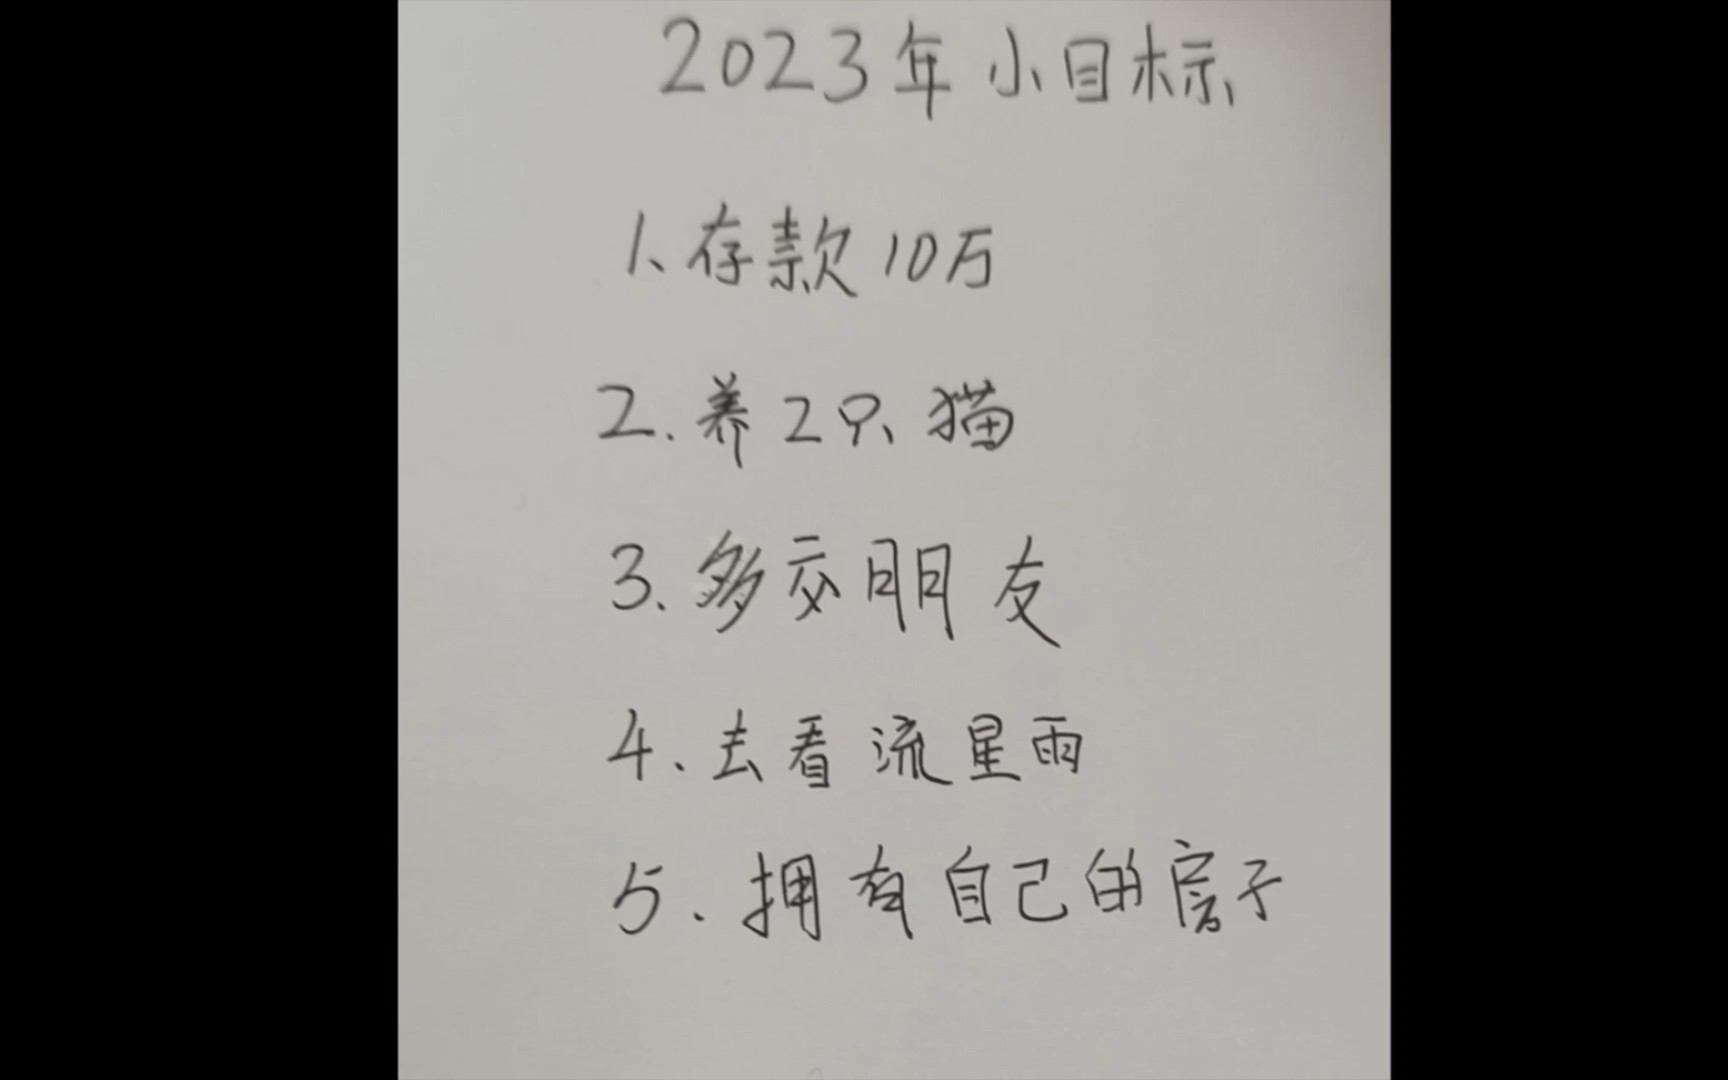 2023年小目标
1、存款10万
2.养2只猫
3.多交朋友
4、去看流星雨
5.拥有自己的房子